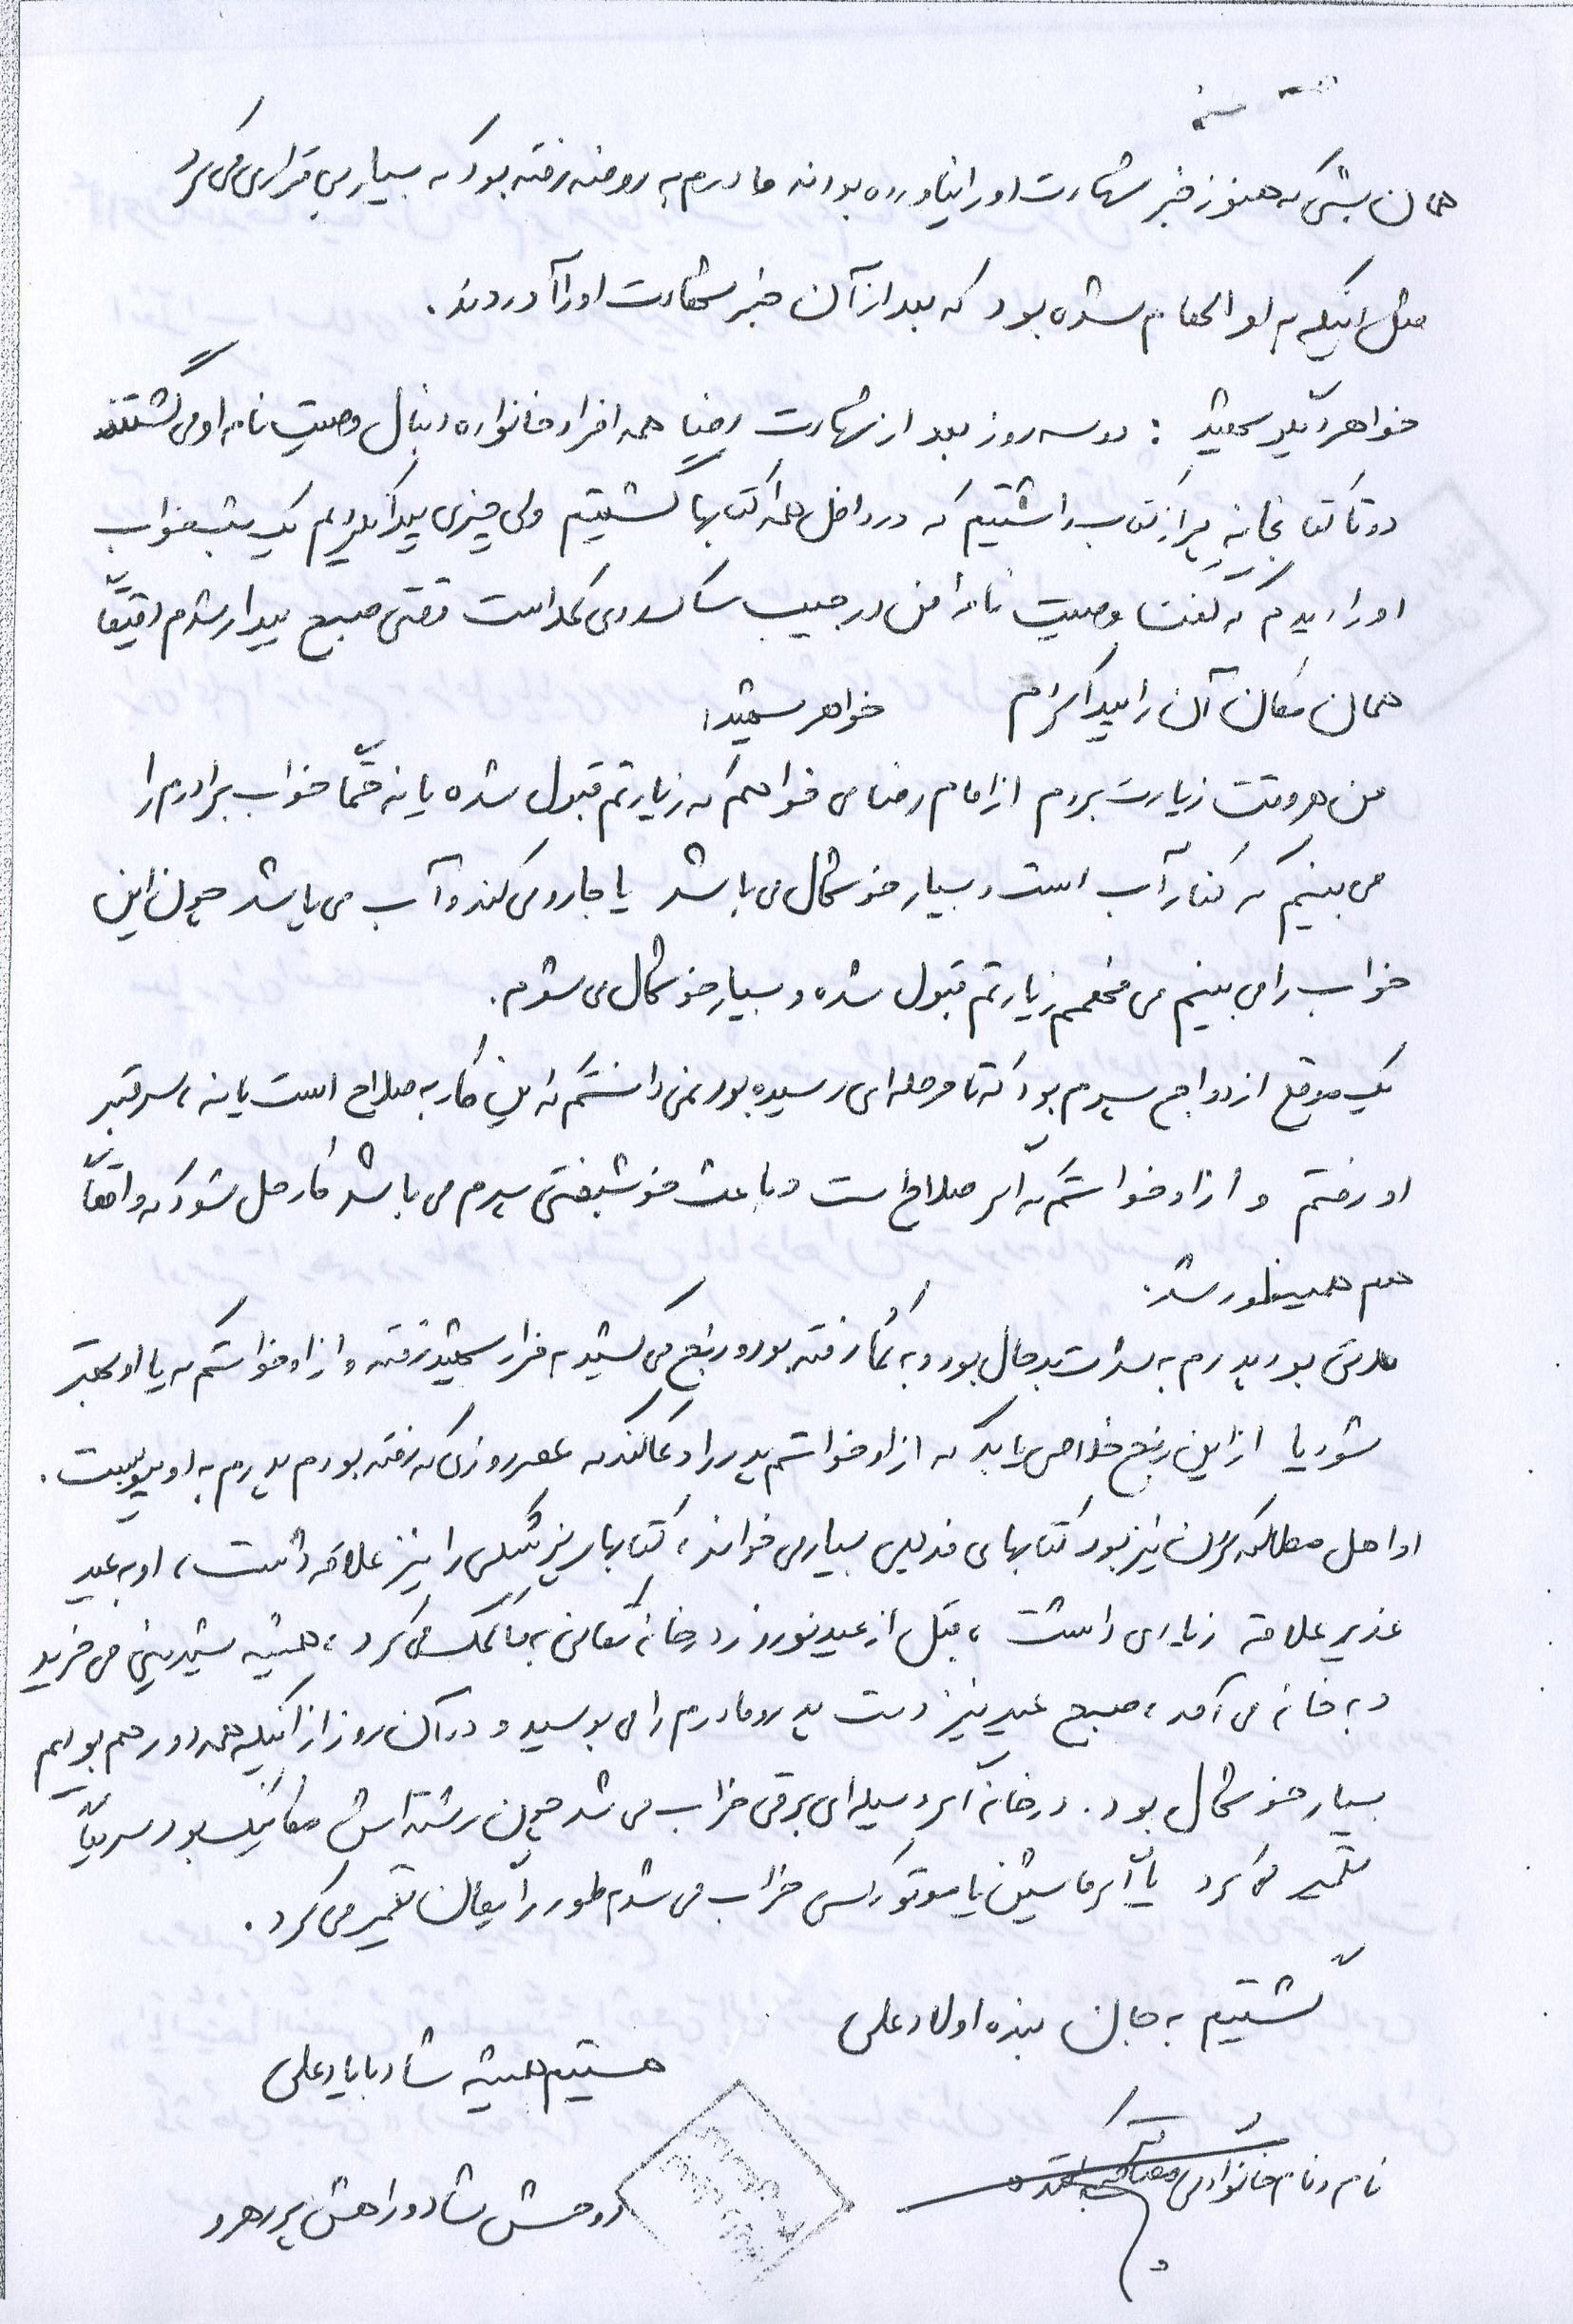 همان شبی که هنوز خبر شهادت او را نیاورده بودند مادرم به روضه رفته بود که بسیار بی قراری می کرد
مثل اینکه به او الهام شده بود که بعد از آن خبر شهادت او را آوردند.
خواهر شهید : دو سه روز بعد از شهادت رضا همه افراد خانواده دنبال وصیت نامه او می گشتند
دو تا کتابخانه پر از کتاب داشتیم که در داخل همه کتابها گشتیم ولی چیزی پیدا نکردیم یک شب خواب
او را دیدم که گفت وصیت نامه من در جیب ساک روی کمد است وقتی صبح بیدار شدم دقیقاً
همان مکان آن را پیدا کردم خواهر شهید:
من هر وقت زیارت بروم از امام رضا می خواهم که زیارتم قبول شده یا نه حتماً خواب برادرم را
می بینم که کنار آب است و بسیار خوشحال می باشد یا جارو می کند و آب می پاشد چون این
خواب را می بینم می فهمم زیارتم قبول شده و بسیار خوشحال می شوم.
یک موقع ازدواج پسرم بود که تا مرحله ای رسیده بود نمی دانستم که این کار به صلاح است یا نه، سر قبر
او رفتم و از او خواستم که اگر صلاح است و باعث خوشبختی پسرم می باشد کار حل شود که واقعاً
هم همینطور شد.
مدتی بود پدرم به شدت بدحال بود و به کما رفته بود و رنج می کشید به مزار شهید رفته و از او خواستم که یا او بهتر
شود یا از این رنج خلاصی یابد که از او خواستم پدر را دعا کند که عصر روزی که رفته بودم پدرم به او پیوست.
او اهل مطالعه کردن نیز بود کتابهای مذهبی بسیار می خواند، کتابهای پزشکی را نیز علاقه داشت، او به عید
غدیر علاقه زیادی داشت، قبل از عید نوروز در خانه تکانی به ما کمک می کرد، همیشه شیرینی می خرید
و به خانه می آمد، صبح عید نیز دست پدر و مادرم را می بوسید و در آن روز از اینکه همه دور هم بودیم
بسیار خوشحال بود. در خانه اگر وسیله ای برقی خراب می شد چون رشته اش مکانیک بود سریعاً
تعمیر می کرد یا اگر ماشین یا موتور کسی خراب می شد بطور رایگان تعمیر می کرد.
گشتیم به جان بنده اولاد علی
هستیم همیشه شاد با یاد علی
نام و نام خانوادگی مصاحبه کننده
روحش شاد و راهش پر رهرو